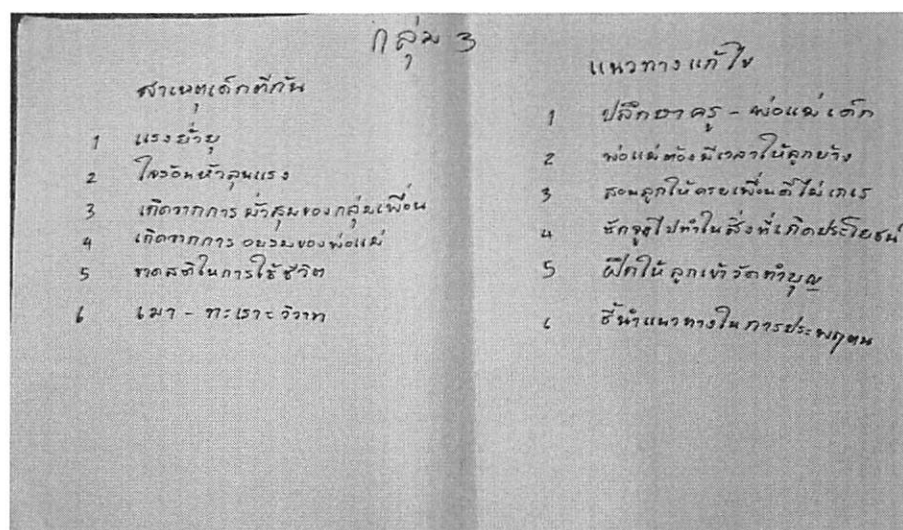 กลุ่ม 3
สาเหตุเด็กตีกัน
1 แรงยั่วยุ
2 ใจร้อนหัวรุนแรง
3 เกิดจากการมั่วสุมของกลุ่มเพื่อน
4 เกิดจากการอบรมของพ่อแม่
5 ขาดสติในการใช้ชีวิต
6 เมา - ทะเราะวิวาท
แนวทางแก้ไข
1 ปลึกษาครู - พ่อแม่เด็ก
2 พ่อแม่ต้องมีเวลาให้ลูกบ้าง
3 สอนลูกให้ครบเพื่อนดีไม่เกเร
4 ชักจูงไปทำในสิ่งที่เกิดประโยชน์
5 ฝึกให้ลูกเข้าวัดทำบุญ
6 ชี้นำแนวทางในการประพฤตน